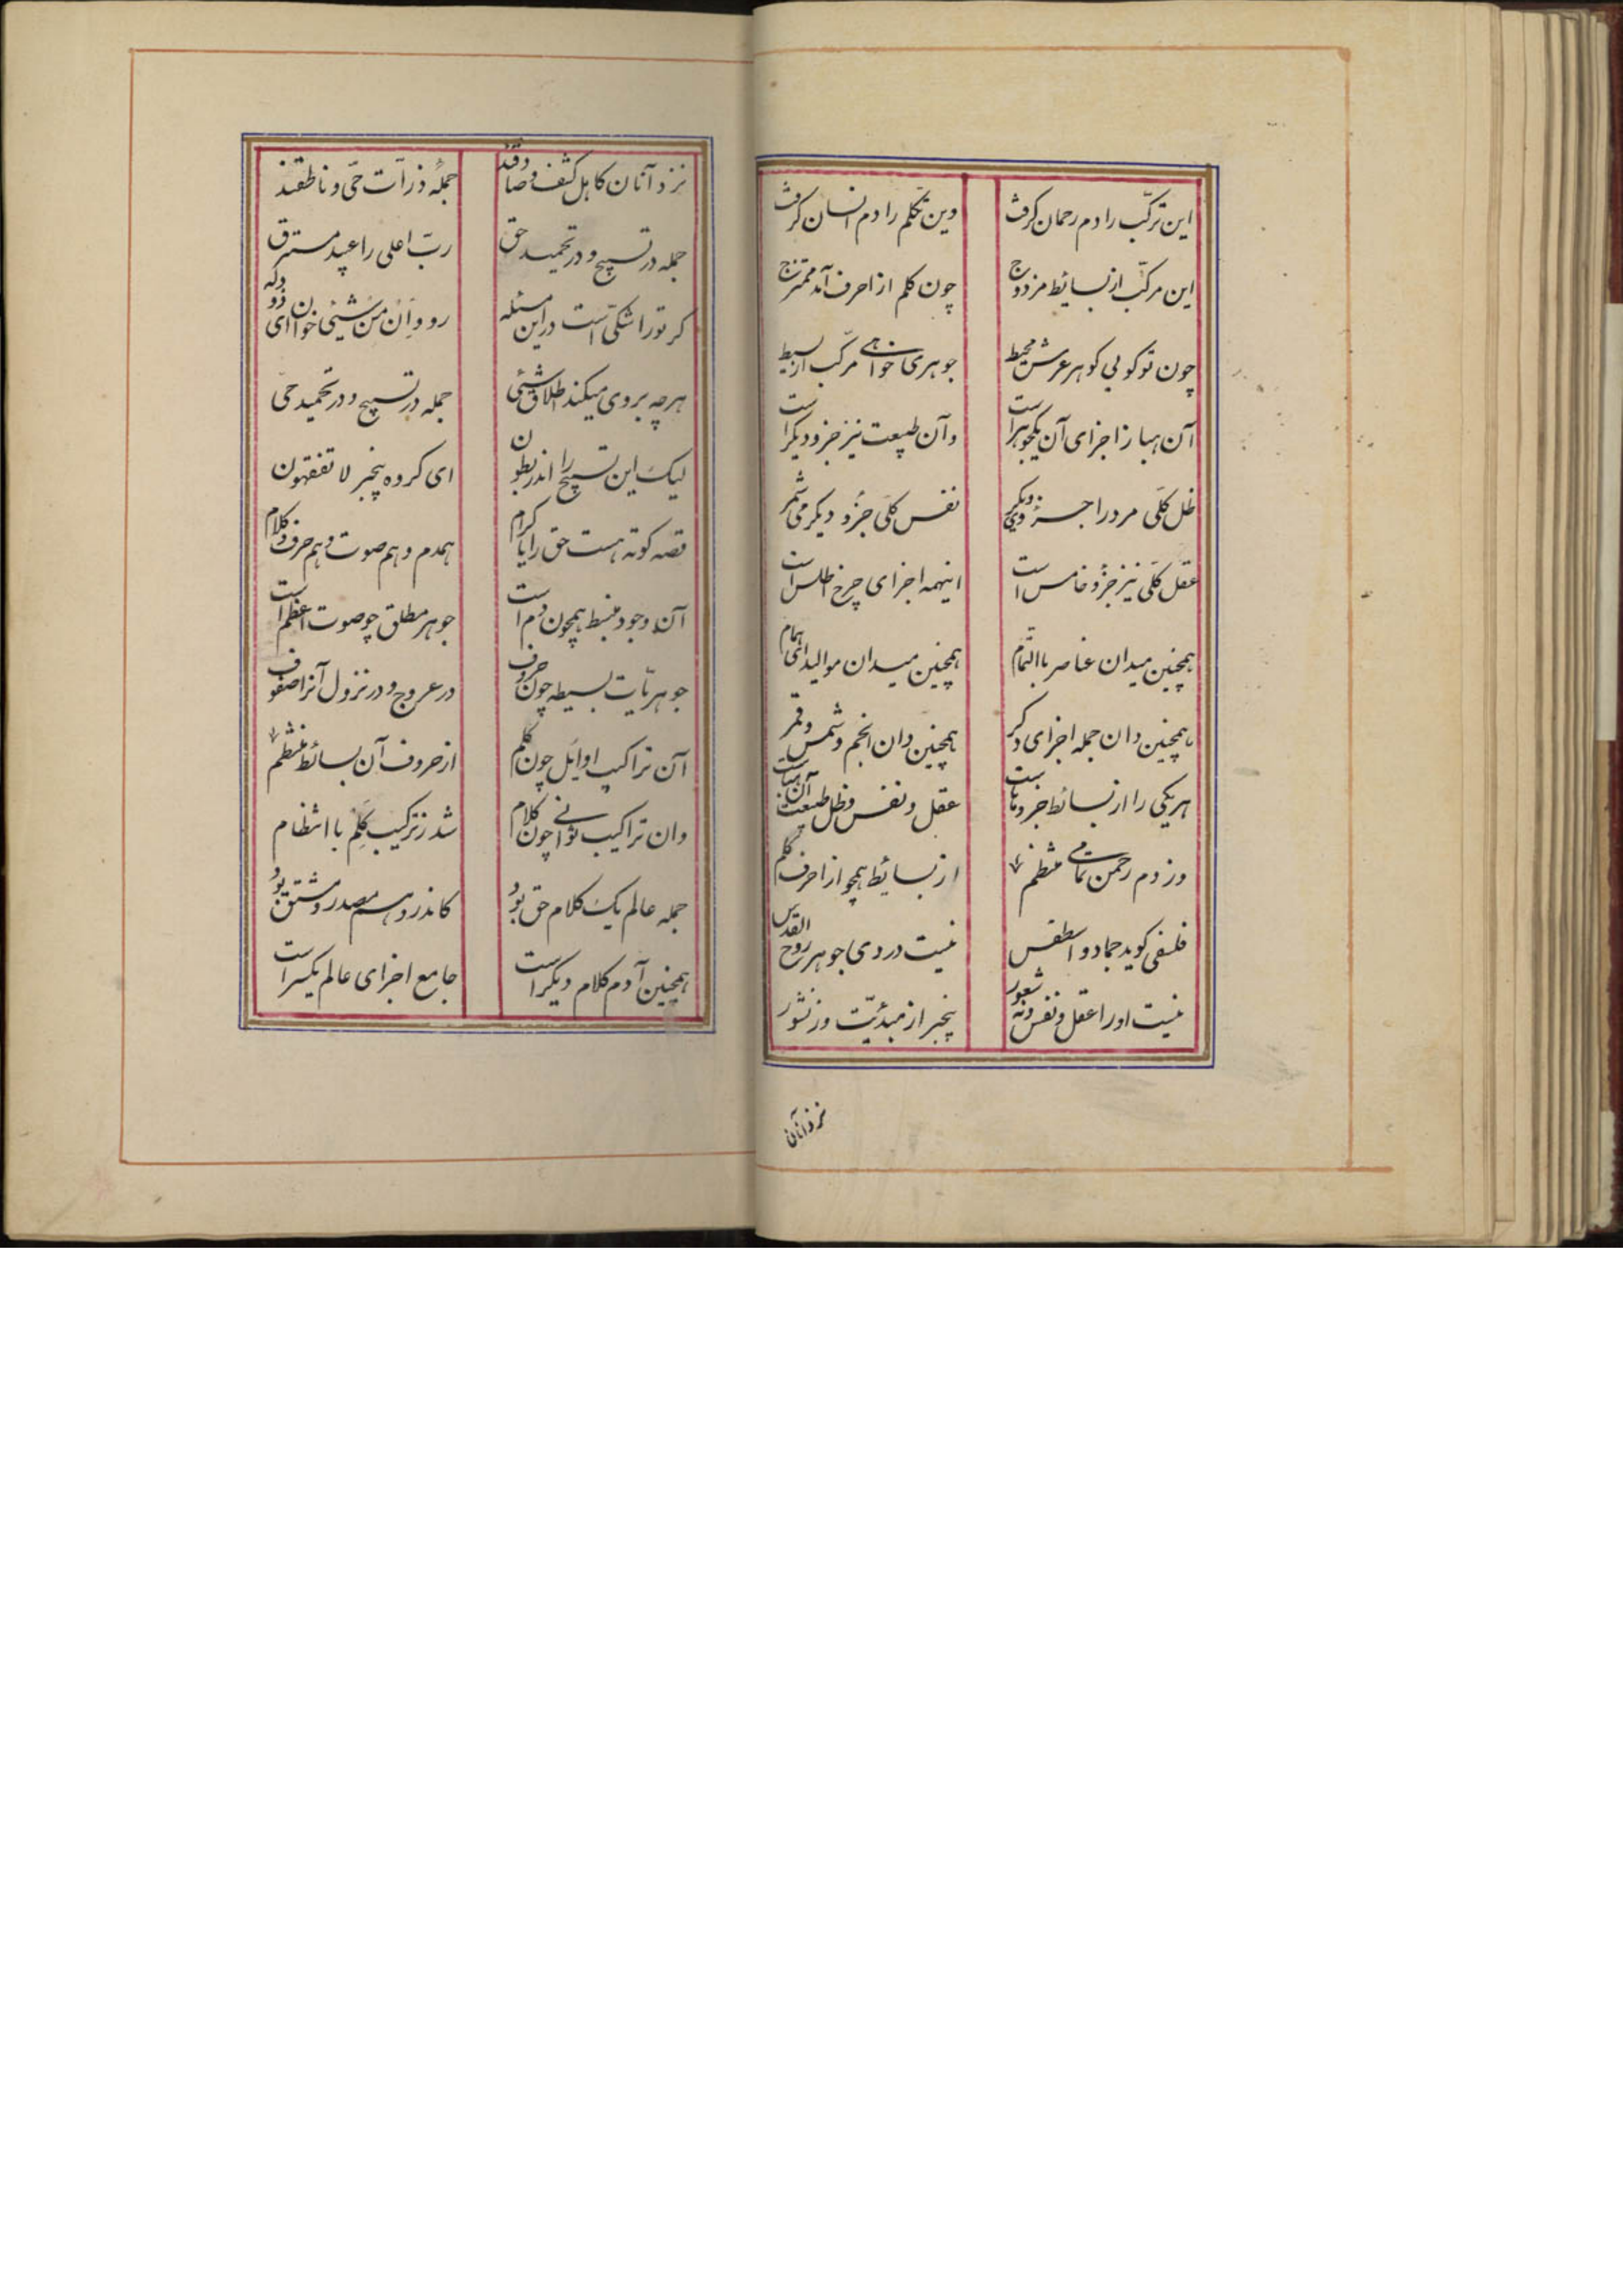 این ترکّب را دم رحمان گرفت وین تکلم را دم انسان گرفت
این مرکّب از بسائط مزدوج چون کلم از احرف آمد ممتزج
چون تو گوئی گوهر عرش محیط جوهری خواهی مرکّب از بسیط
آن هبا ز اجزای آن یکجوهر است وآن طبیعت نیز جزو دیگر است
ظل کلّی مر ورا جزو دیگر نفس کلّی جزو دیگر می شمر
عقل کلّی نیز جزو خامس است اینهمه اجزای چرخ اطلس است
همچنین میدان عناصر باالتمام همچنین میدان موالید ای همام
همچنین دان جمله اجزای دگر همچنین دان انجم و شمس و قمر
هر یکی را از بسائط جزوهاست عقل و نفس و ظل طبیعت آن هباست
وز دم رحمن تمامی منتظم از بسائط همچو از احرف کلم
فلسفی گوید جماد و اسطقس نیست در وی جوهر روح القدس
نیست اورا عقل و نفس و نه شعور بیخبر از مبدئیّت وز نشور
نزد آنان
نزد آنان کاهل کشف و صادقند جمله ذرّات حیّ و ناطقند
جمله در تسبیح و در تحمید حق ربّ اعلی را عبید مسترق
گر تورا شکّی است در این مسئله رو وَاِن مِن شیئی خوان ای ذو وله
هرچه بر وی میکند اطلاق شیئی جمله در تسبیح و در تحمید حیّ
لیک این تسبیح را اندر بطون ای گروه بیخبر لا تفقهون
قصه کوته هست حق را یا کرام همدم و هم صوت و هم حرف و کلام
آن وجود منبسط همچون دم است جوهر مطلق چو صوت اعظم است
جوهریّات بسیطه چون حروف در عروج و در نزول آنرا صفوف
آن تراکیب اوایل چون کلم از حروف آن بسائط منتظم
وان تراکیب ثوانی چون کلام شد ز ترکیب کَلِم با انتظام
جمله عالم یک کلام حق بود کاندر و هم مصدر و مشتق بود
همچنین آدم کلام دیگر است جامع اجزای عالم یکسر است